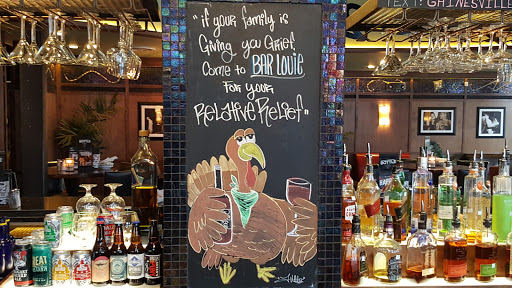 TEXT: GAINESVILLE
"if your family is
Giving you Grief
Come to BAR LOUIE
for your
Relative Relief"